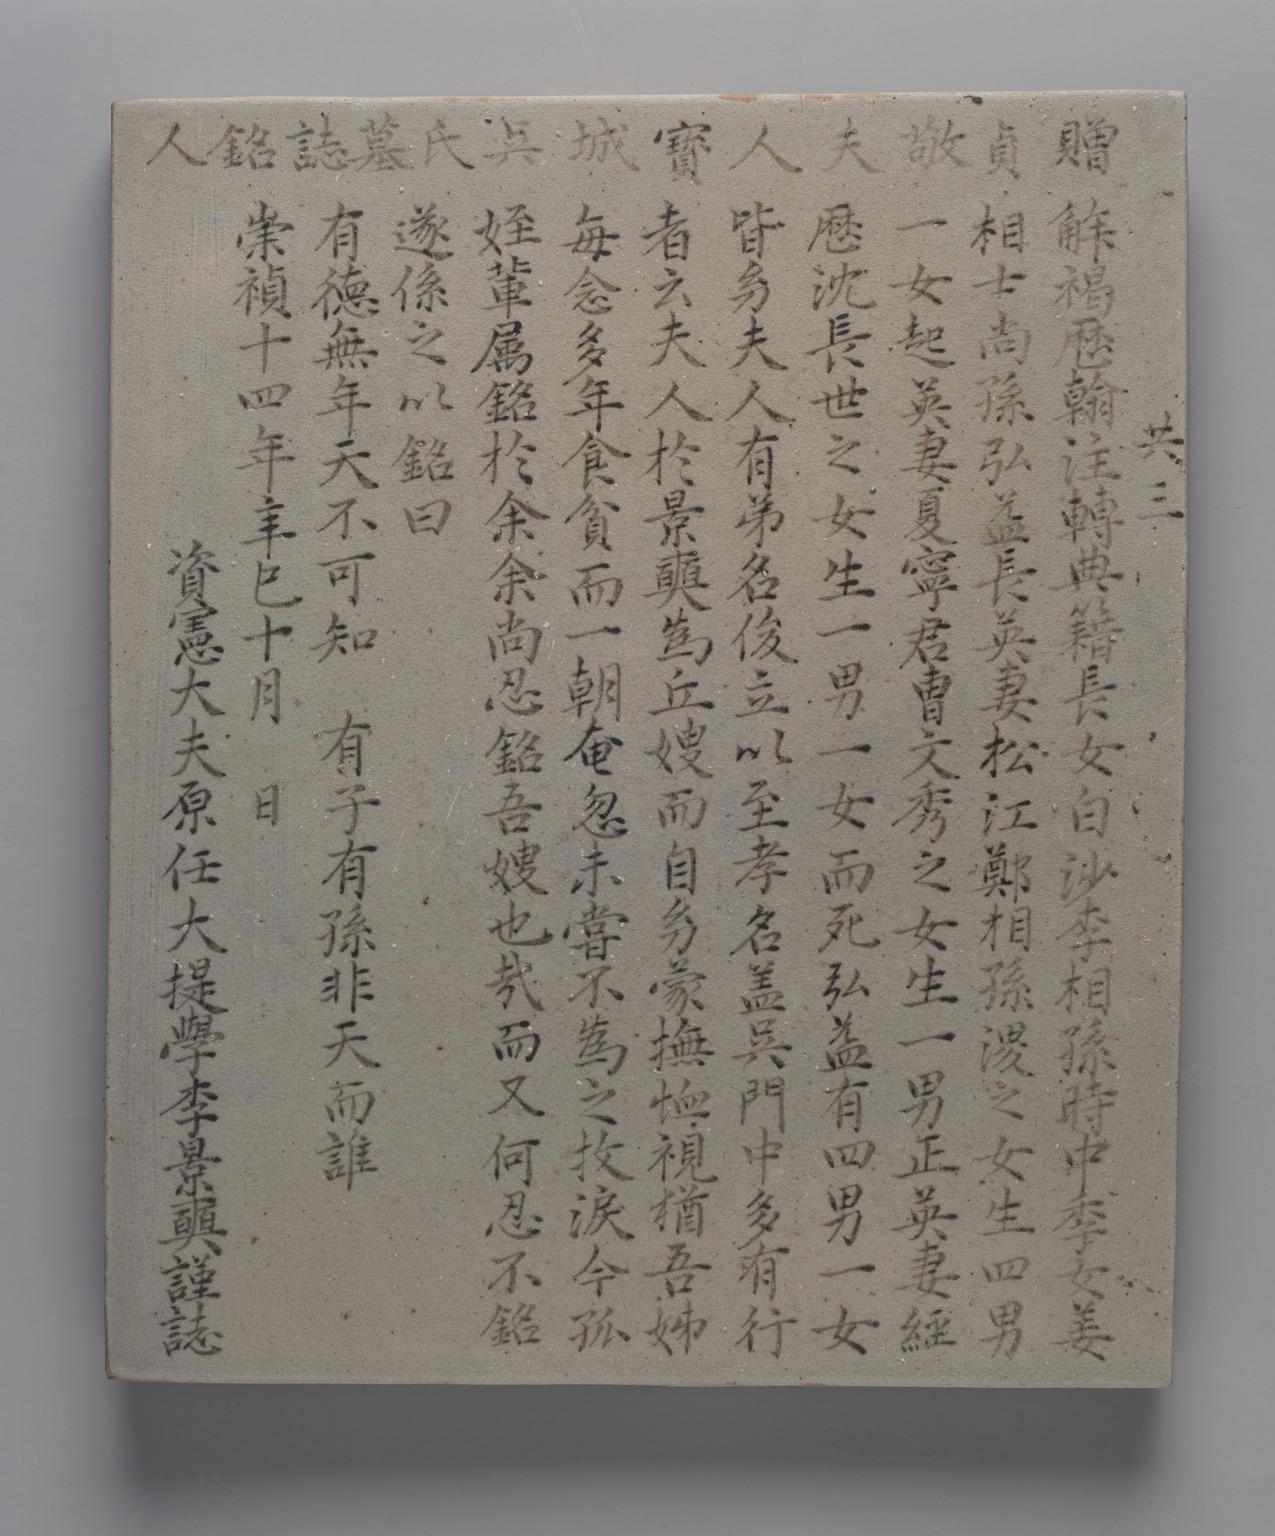 共三
贈貞敬夫人寶城吳氏墓誌銘人
解褐歷翰注轉典籍長女白沙李相孫時中季女姜
相士尚孫弘益長英妻松江鄭相孫溭之女生四男
一女起英妻夏寧君曺文秀之女生一男正英妻經
歷沈長世之女生一男一女而死弘益有四男一女
皆夯夫人有弟名俊立以至孝名盖吳門中多有行
者云夫人於景奭為丘嫂而自夯蒙撫恤視猶吾姊
每念多年食貧而一朝奄忽未嘗不為之抆淚今孤
姪輩属銘於余余尚忍銘吾嫂也㢤而又何忍不銘
遂係之以銘曰
有德無年天不可知　有子有孫非天而誰
崇禎十四年辛巳十月　日
資憲大夫原任大提學李景奭謹誌